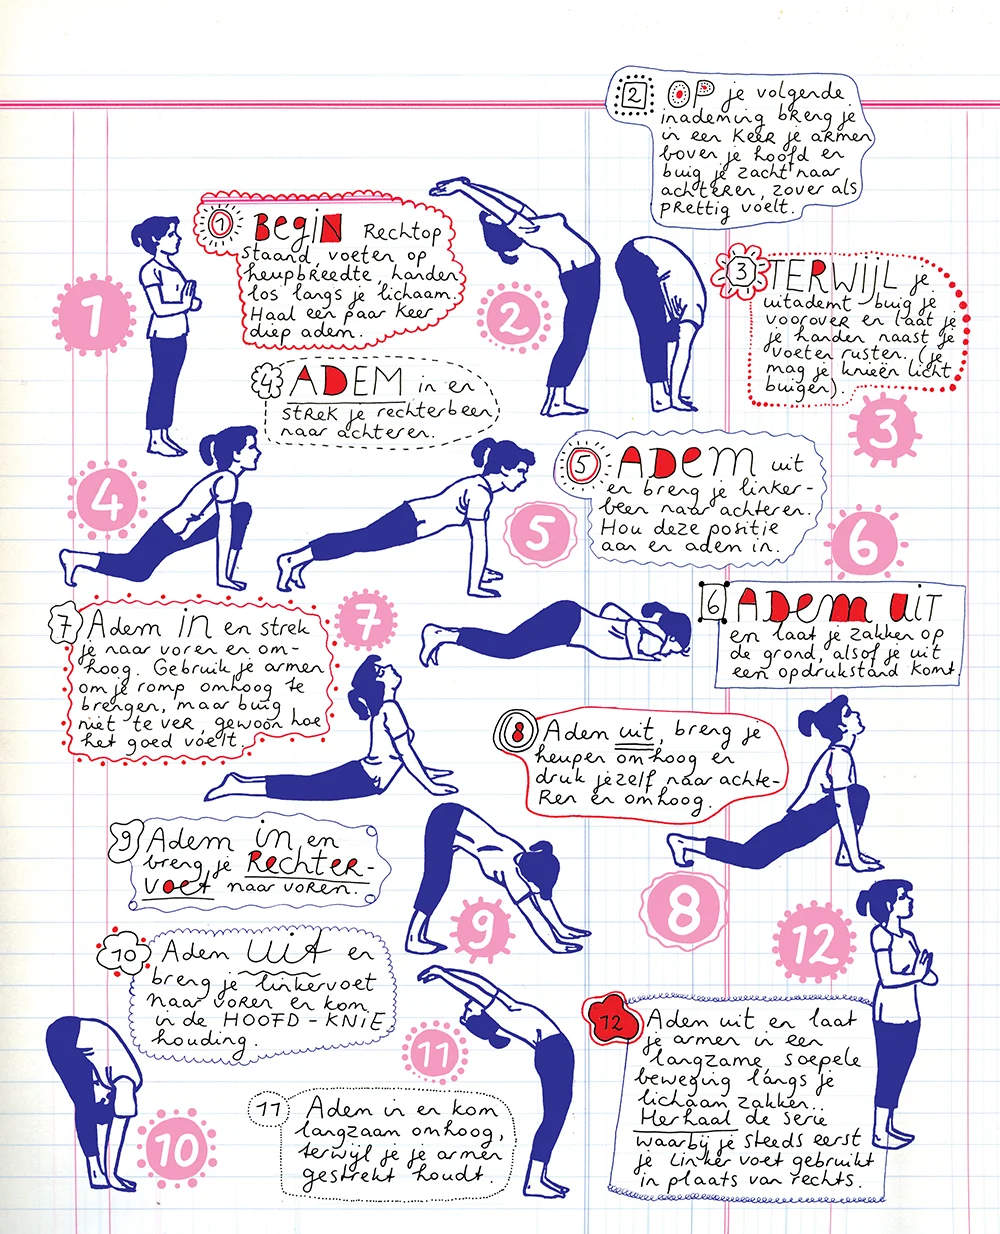 1
1
BEGIN Rechtop
staand, voeten op
heupbreedte, handen
los langs je lichaam.
Haal een paar keer
diep adem.
2
2
OP je volgende
inademing breng je
in een keer je armen
boven je hoofd en
buig je zacht naar
achteren, zover als
prettig voelt.
3
TERWIJL je
uitademt buig je
voorover en laat je
je handen naast je
voeten rusten. (je
mag je knieën licht
buigen).
3
4
4
ADEM in en
strek je rechterbeen
naar achteren.
5
5
ADEM uit
en breng je linker-
been naar achteren.
Hou deze positie
aan en adem in.
6
6
ADEM UIT
en laat je zakken op
de grond, alsof je uit
een opdrukstand komt
7
7
Adem in en strek
je naar voren en om-
hoog. Gebruik je armen
om je romp omhoog te
brengen, maar buig
niet te ver, gewoon hoe
het goed voelt.
8
Adem uit, breng je
heupen omhoog en
druk jezelf naar achte-
ren en omhoog.
8
9
Adem in en
breng je Rechter-
voet naar voren.
9
10
Adem UIT en
breng je linkervoet
naar voren en kom
in de HOOFD-KNIE
houding.
10
11
11
Adem in en kom
langzaam omhoog,
terwijl je je armen
gestrekt houdt.
12
12
Adem uit en laat
je armen in een
langzame, soepele
beweging lángs je
lichaam zakken.
Herhaal de serie
waarbij je steeds eerst
je linker voet gebruikt
in plaats van rechts.